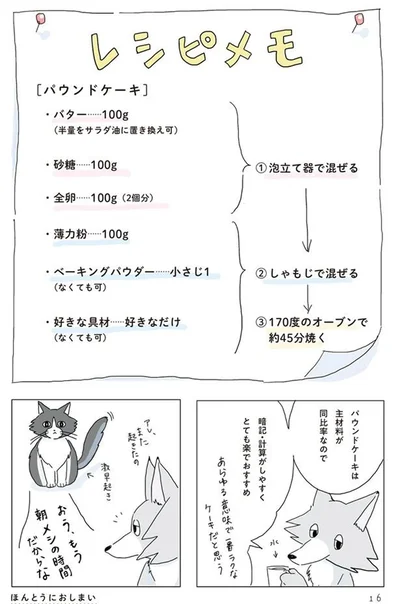 レシピメモ
[パウンドケーキ]
・バター……100g
(半量をサラダ油に置き換え可)
・砂糖……100g
・全卵……100g(2個分)
①泡立て器で混ぜる
・薄力粉……100g
・ベーキングパウダー……小さじ1
(なくても可)
②しゃもじで混ぜる
・好きな具材……好きなだけ
(なくても可)
③170度のオーブンで
約45分焼く
パウンドケーキは
主材料が
同比率なので
暗記・計算がしやすく
とても楽でおすすめ
あらゆる意味で一番ラクな
ケーキだと思う
水
アレ、
また
起きたの
激早起き
おう、もう
朝メシの時間
だからな
ほんとうにおしまい
16